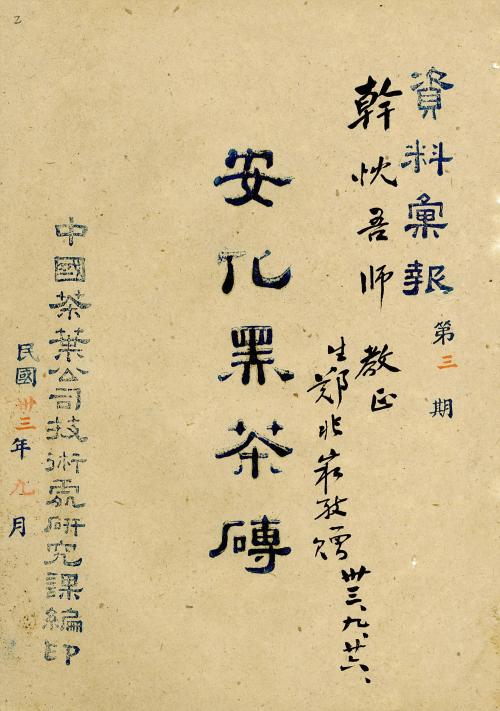 2
資料彙報
第三期
幹忱吾師 教正
生鄭 敬贈 卅三、九、廿六、
安化黑茶磚
中國茶葉公司技術處研究課編印
民國卅三年九月